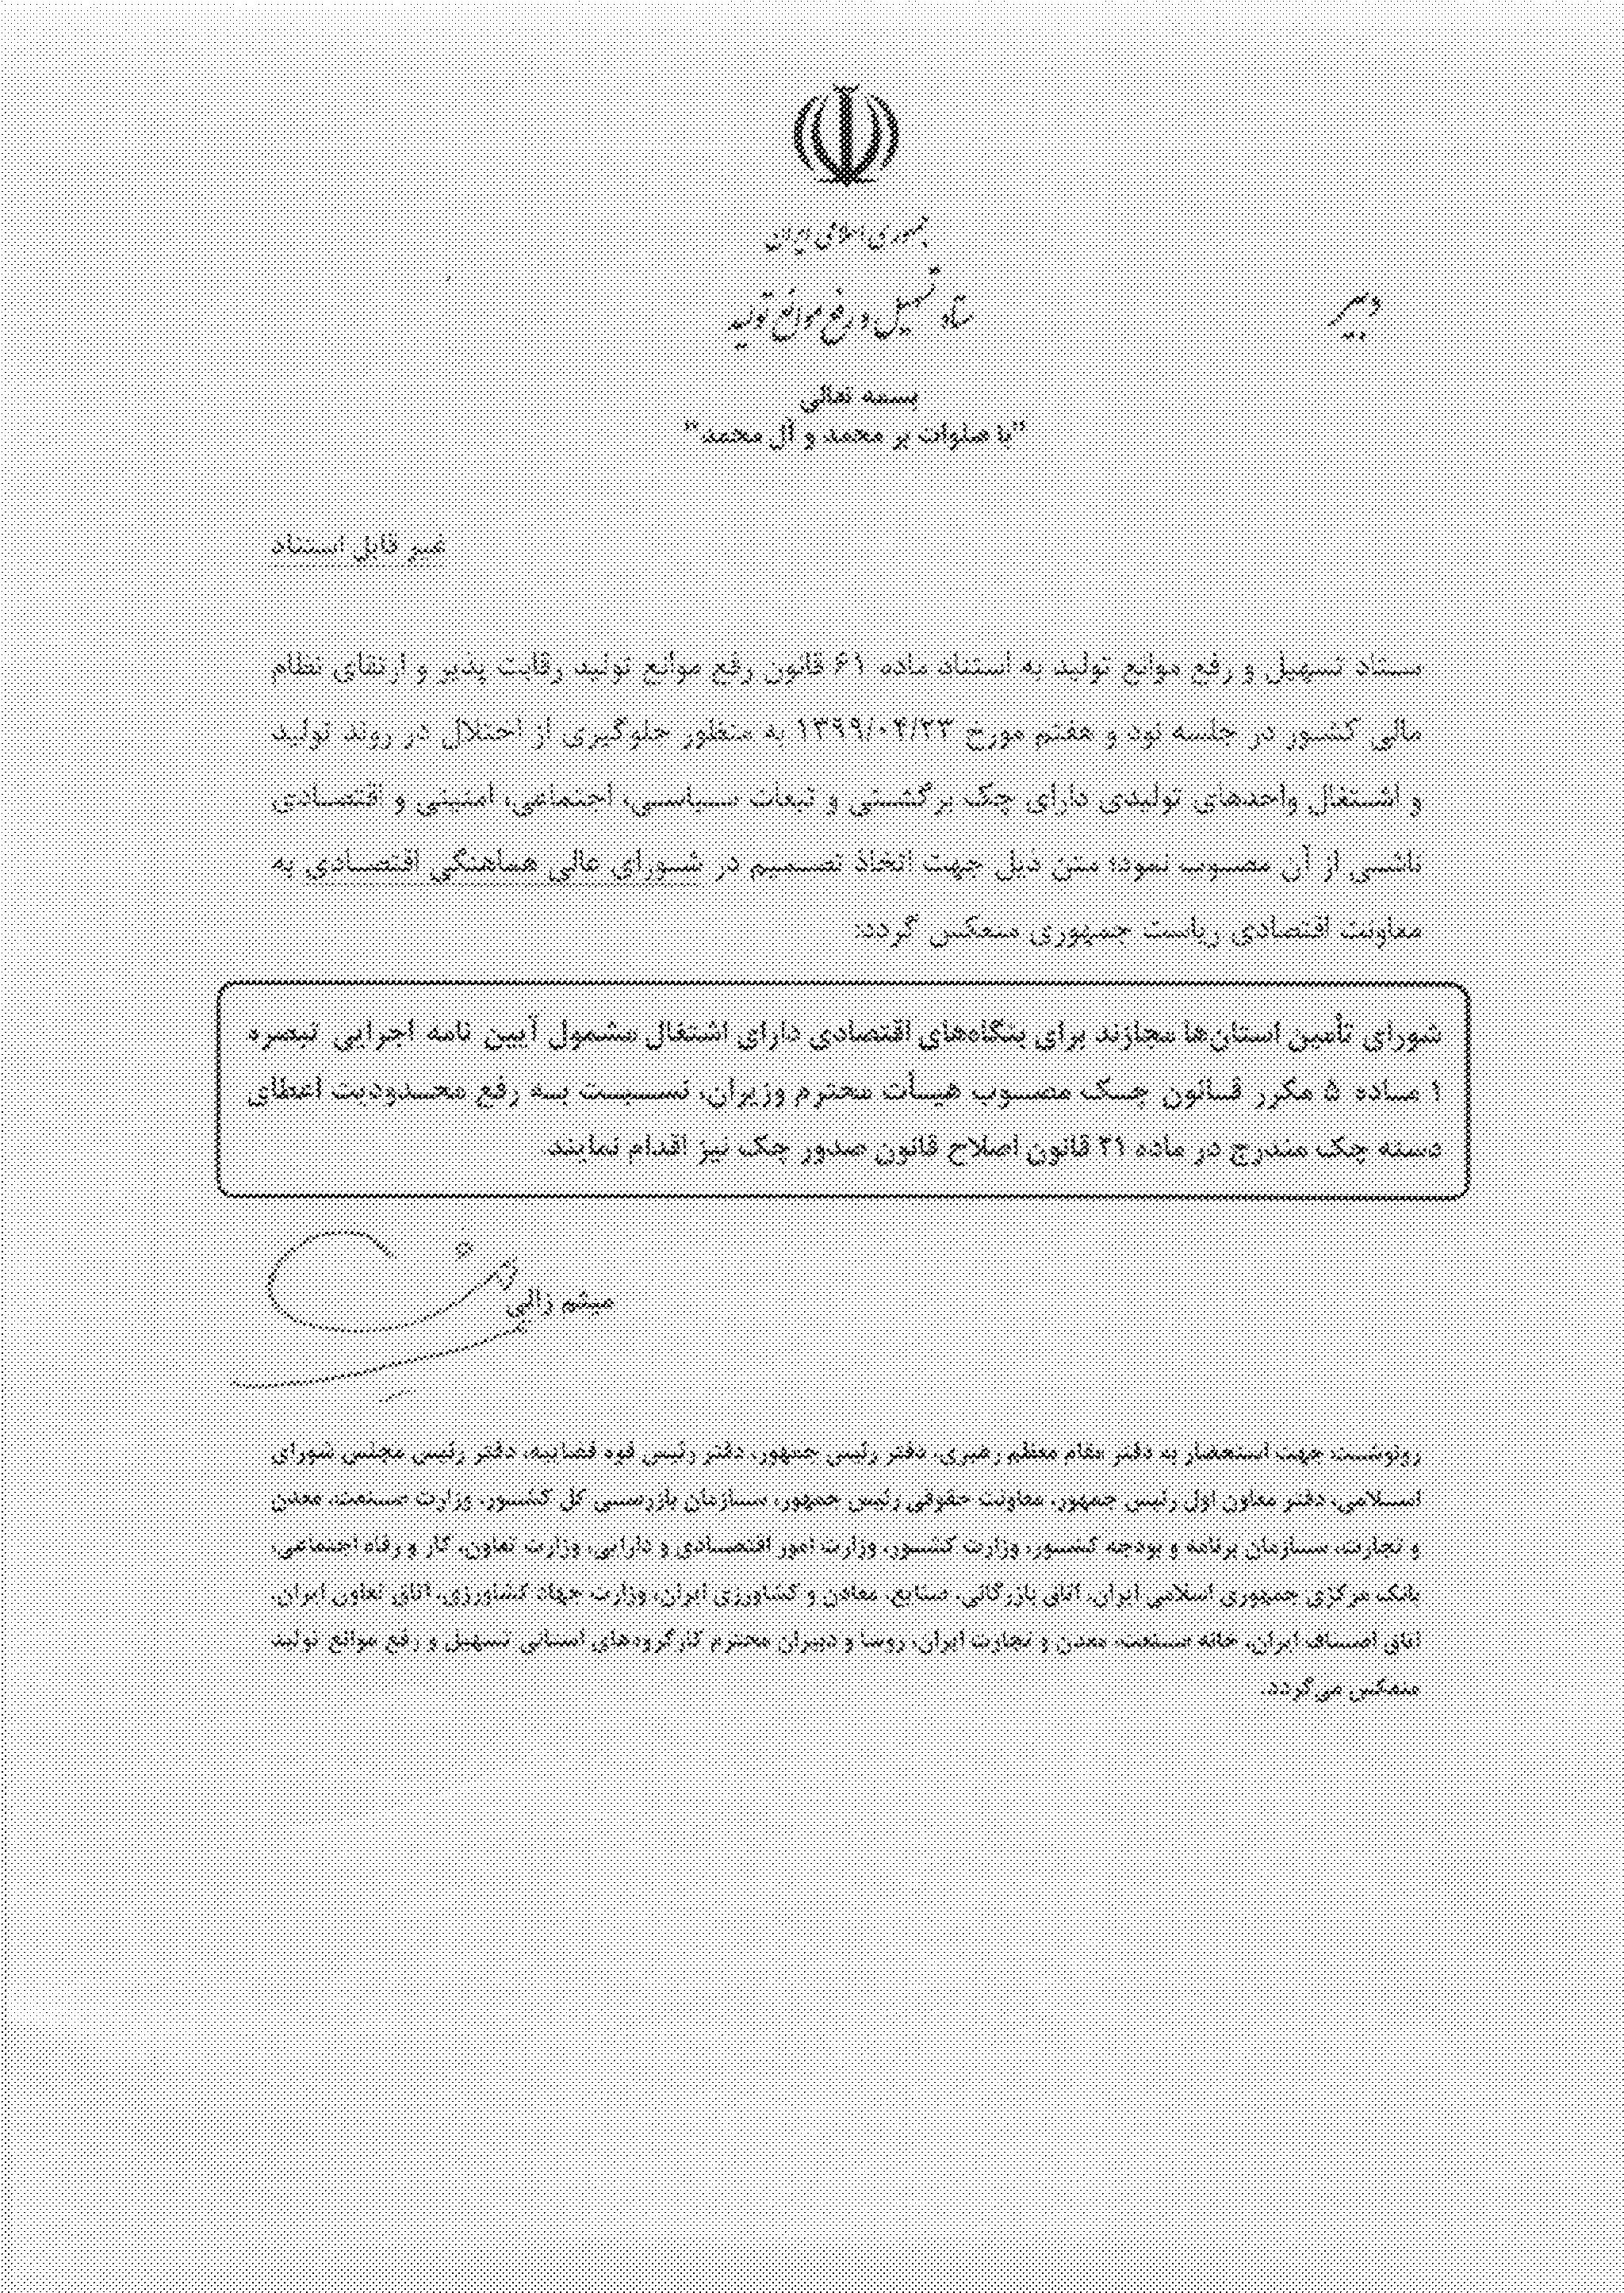 جمهوری اسلامی ایران
ستاد تسهیل و رفع موانع تولید
دبیر
بسمه تعالی
"با صلوات بر محمد و آل محمد"
غیر قابل استناد
ستاد تسهیل و رفع موانع تولید به استناد ماده ۶۱ قانون رفع موانع تولید رقابت پذیر و ارتقای نظام
مالی کشور در جلسه نود و هفتم مورخ ۱۳۹۹/۰۴/۲۳ به منظور جلوگیری از اختلال در روند تولید
و اشتغال واحدهای تولیدی دارای چک برگشتی و تبعات سیاسی، اجتماعی، امنیتی و اقتصادی
ناشی از آن مصوب نمود؛ متن ذیل جهت اتخاذ تصمیم در شورای عالی هماهنگی اقتصادی به
معاونت اقتصادی ریاست جمهوری منعکس گردد:
شورای تأمین استان‌ها مجازند برای بنگاه‌های اقتصادی دارای اشتغال مشمول آیین نامه اجرایی تبصره
۱ ماده ۵ مکرر قانون چک مصوب هیأت محترم وزیران، نسبت به رفع محدودیت اعطای
دسته چک مندرج در ماده ۲۱ قانون اصلاح قانون صدور چک نیز اقدام نمایند.
میثم زالی
رونوشت: جهت استحضار به دفتر مقام معظم رهبری، دفتر رئیس جمهور، دفتر رئیس قوه قضاییه، دفتر رئیس مجلس شورای
اسلامی، دفتر معاون اول رئیس جمهور، معاونت حقوقی رئیس جمهور، سازمان بازرسی کل کشور، وزارت صنعت، معدن
و تجارت، سازمان برنامه و بودجه کشور، وزارت کشور، وزارت امور اقتصادی و دارایی، وزارت تعاون، کار و رفاه اجتماعی،
بانک مرکزی جمهوری اسلامی ایران، اتاق بازرگانی، صنایع، معادن و کشاورزی ایران، وزارت جهاد کشاورزی، اتاق تعاون ایران،
اتاق اصناف ایران، خانه صنعت، معدن و تجارت ایران، روسا و دبیران محترم کارگروه‌های استانی تسهیل و رفع موانع تولید
منعکس می‌گردد.